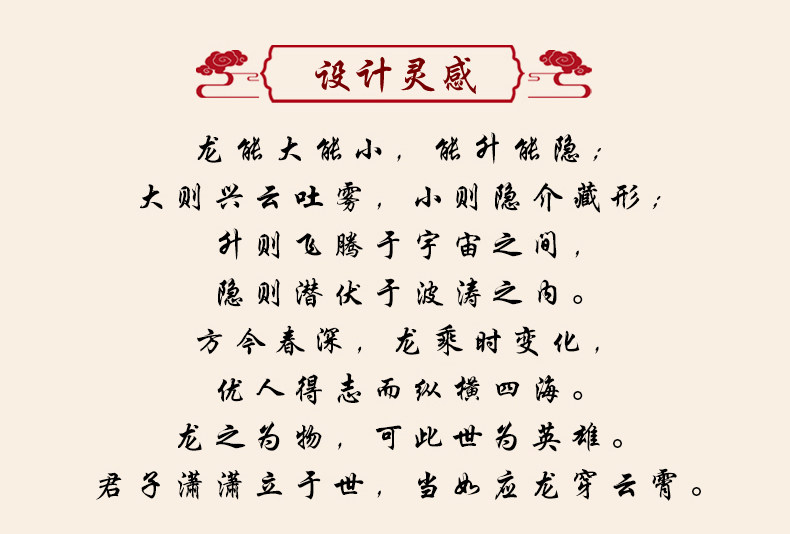 设计灵感
龙能大能小，能升能隐；
大则兴云吐雾，小则隐介藏形；
升则飞腾于宇宙之间，
隐则潜伏于波涛之内。
方今春深，龙乘时变化，
优人得志而纵横四海。
龙之为物，可此世为英雄。
君子潇潇立于世，当如应龙穿云霄。